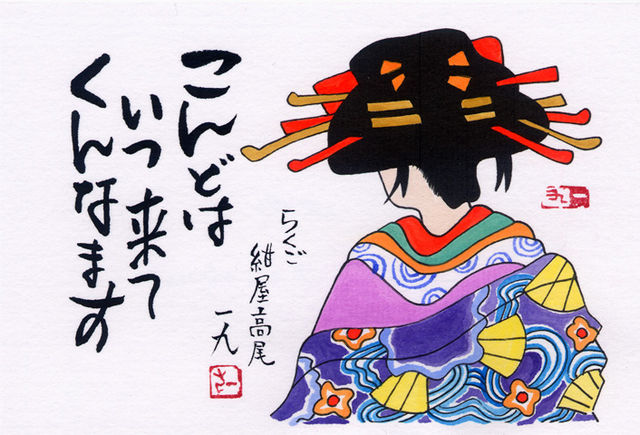 こんどは
いつ来て
くんなます
らくご
紺屋高尾
一九